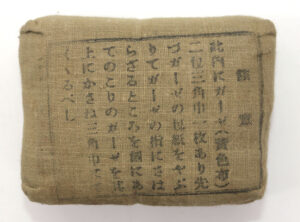 此内にガーゼ(黄色布)
二包三角巾一枚あり先
づガーゼの包紙をやぶ
りてガーゼの指にさは
らざるところを傷にあ
てのこりのガーゼを其
上にかさね三角巾にて
くくるべし